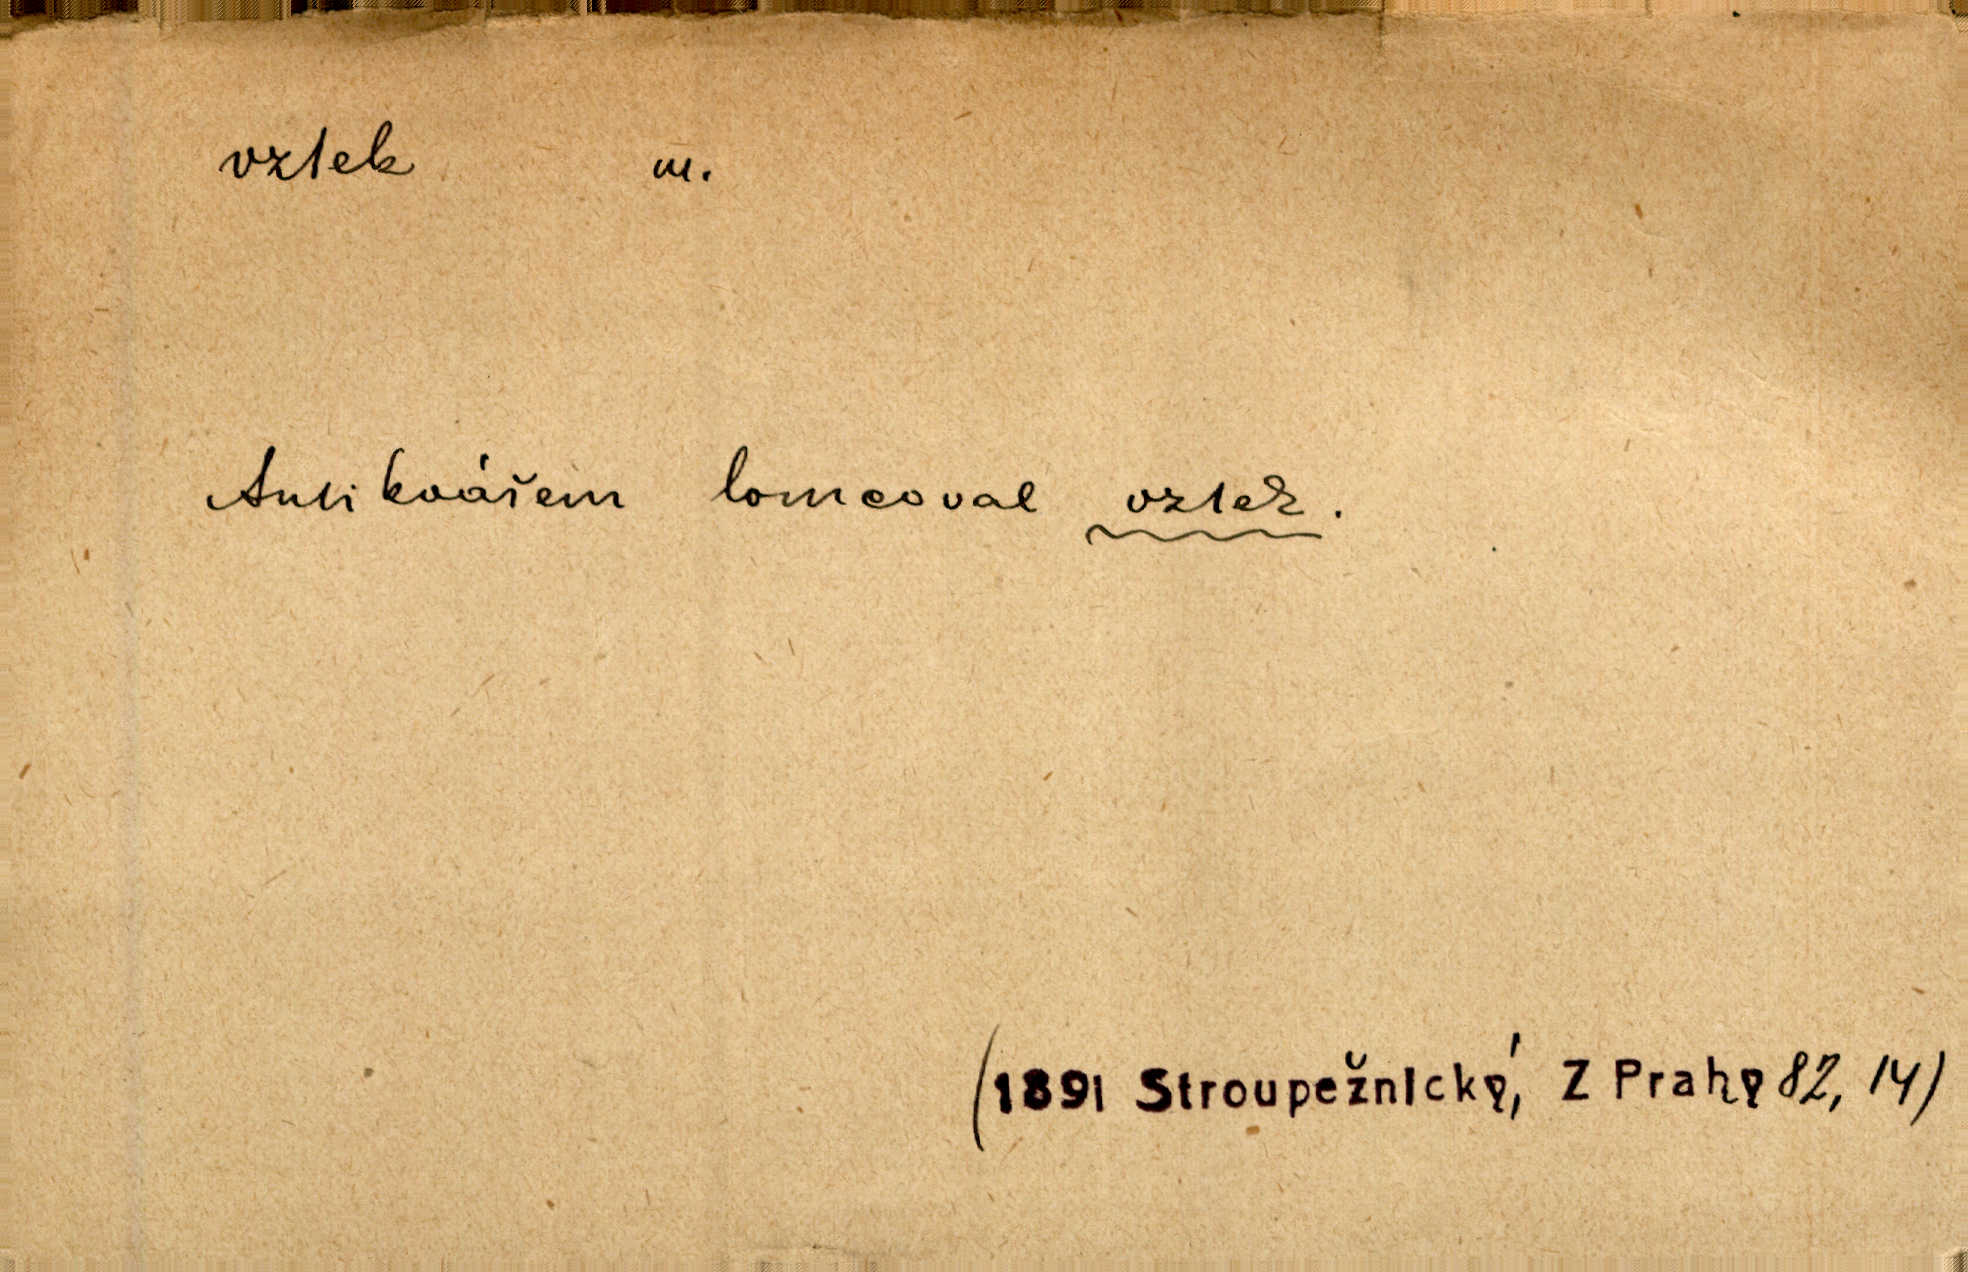 vztek m.
Antikvářem lomcoval vztek.
(1891 Stroupežnický, Z Prahy 82, 14)